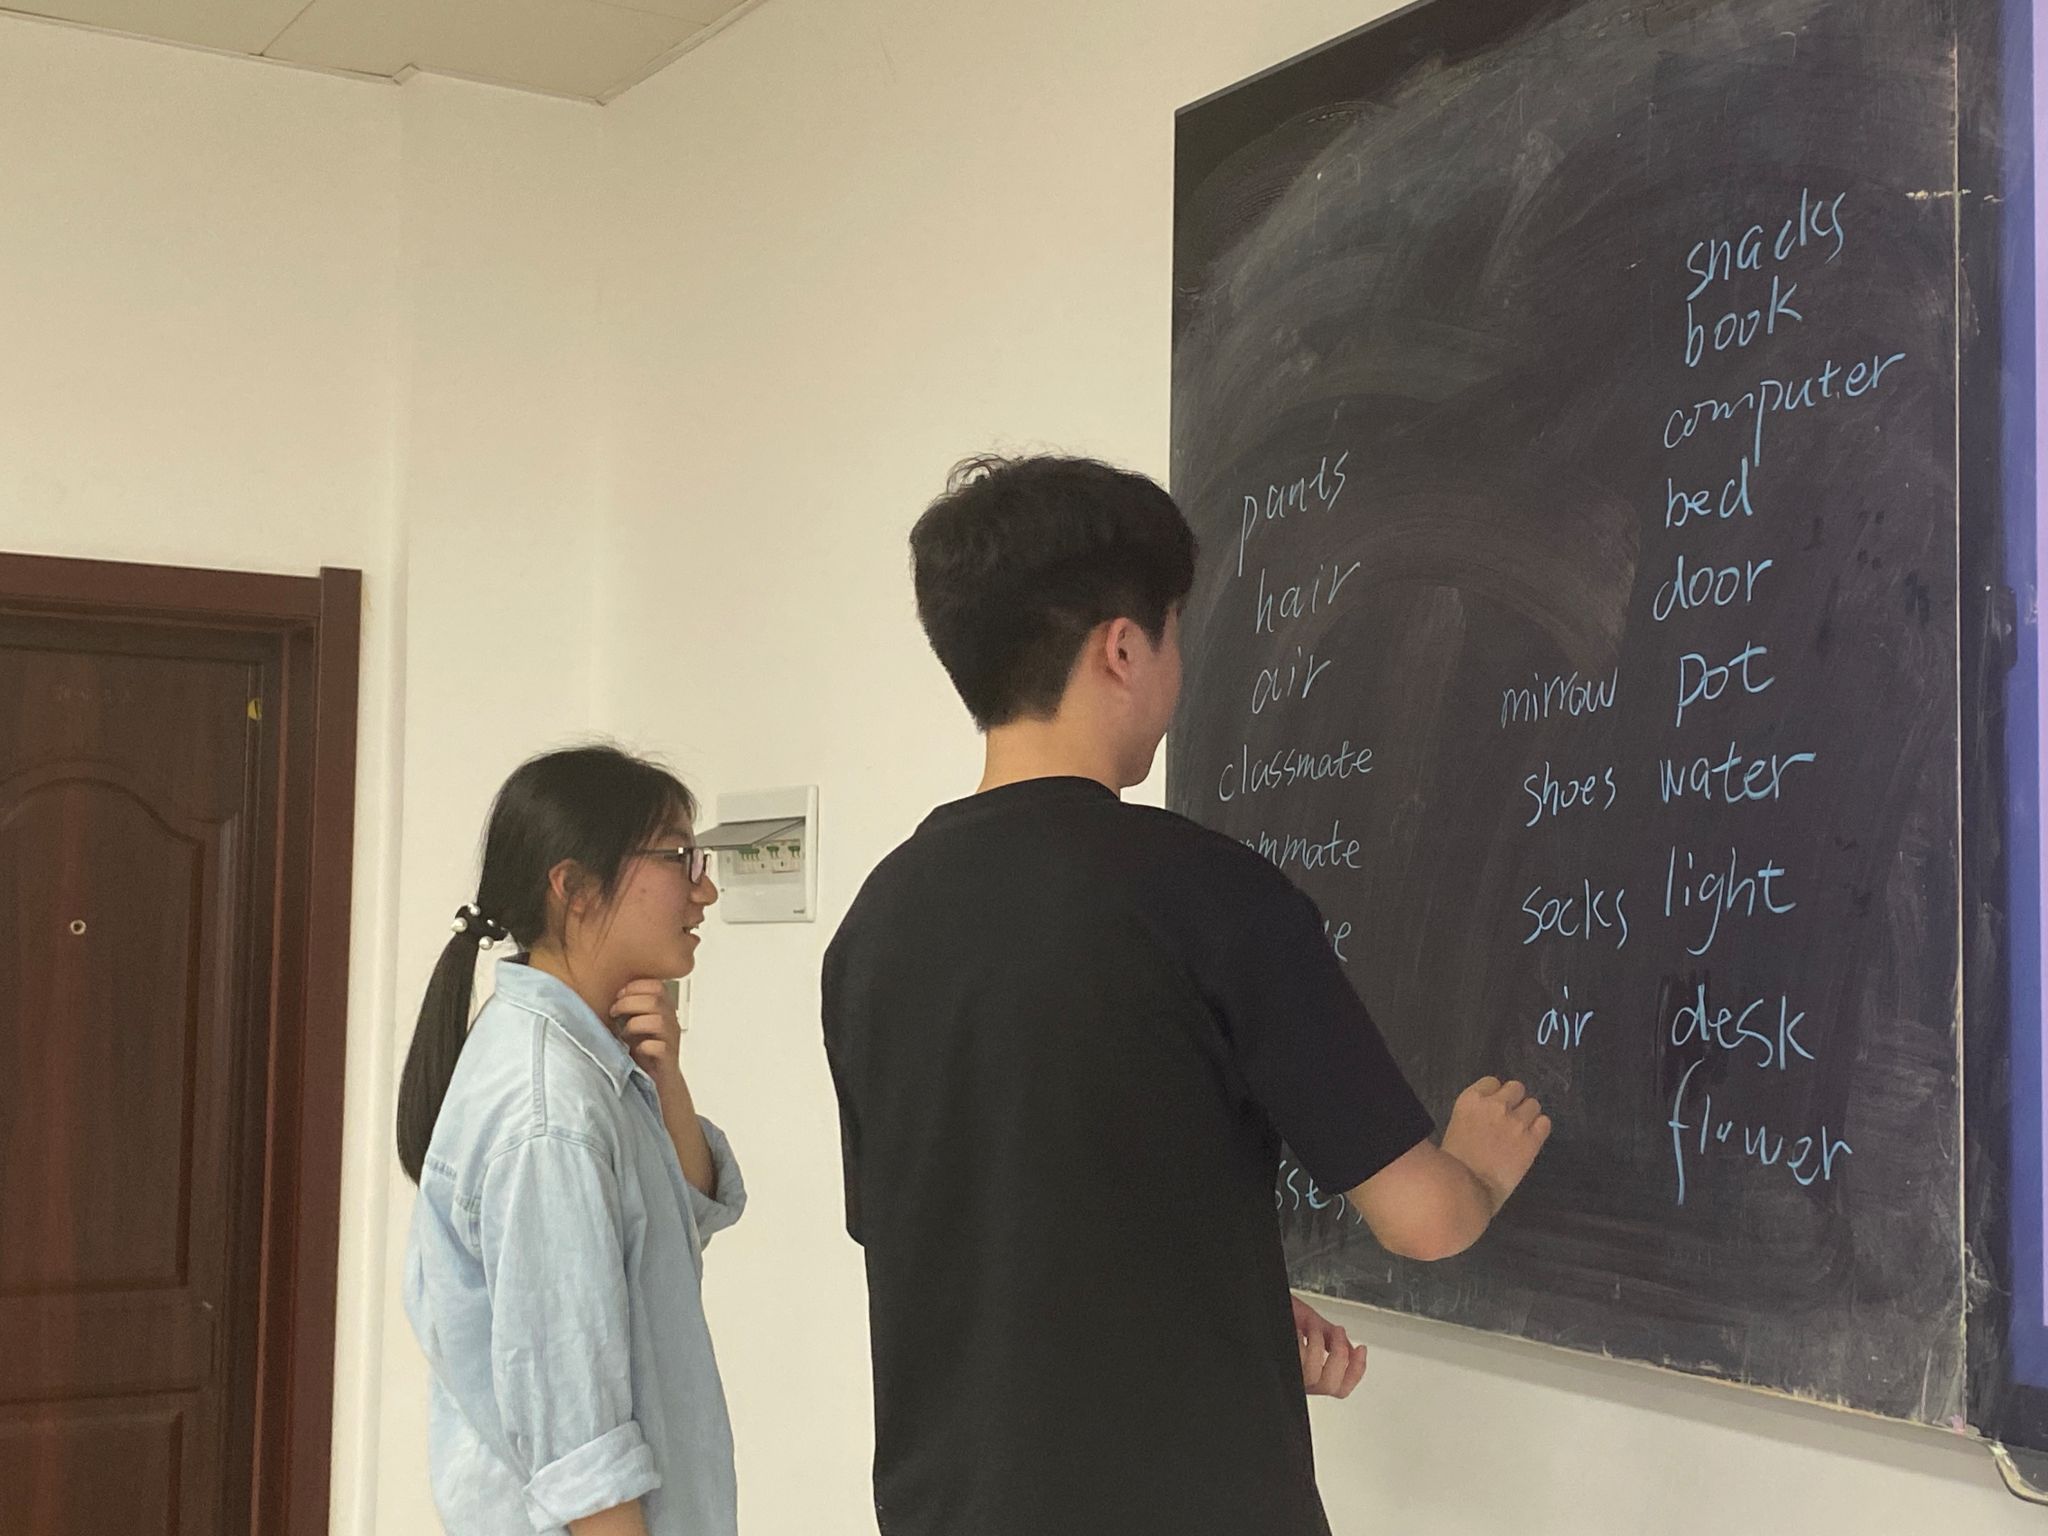 pants
hair
air
classmate
mirrow
shoes
socks
air
snacks
book
computer
bed
door
pot
water
light
desk
flower